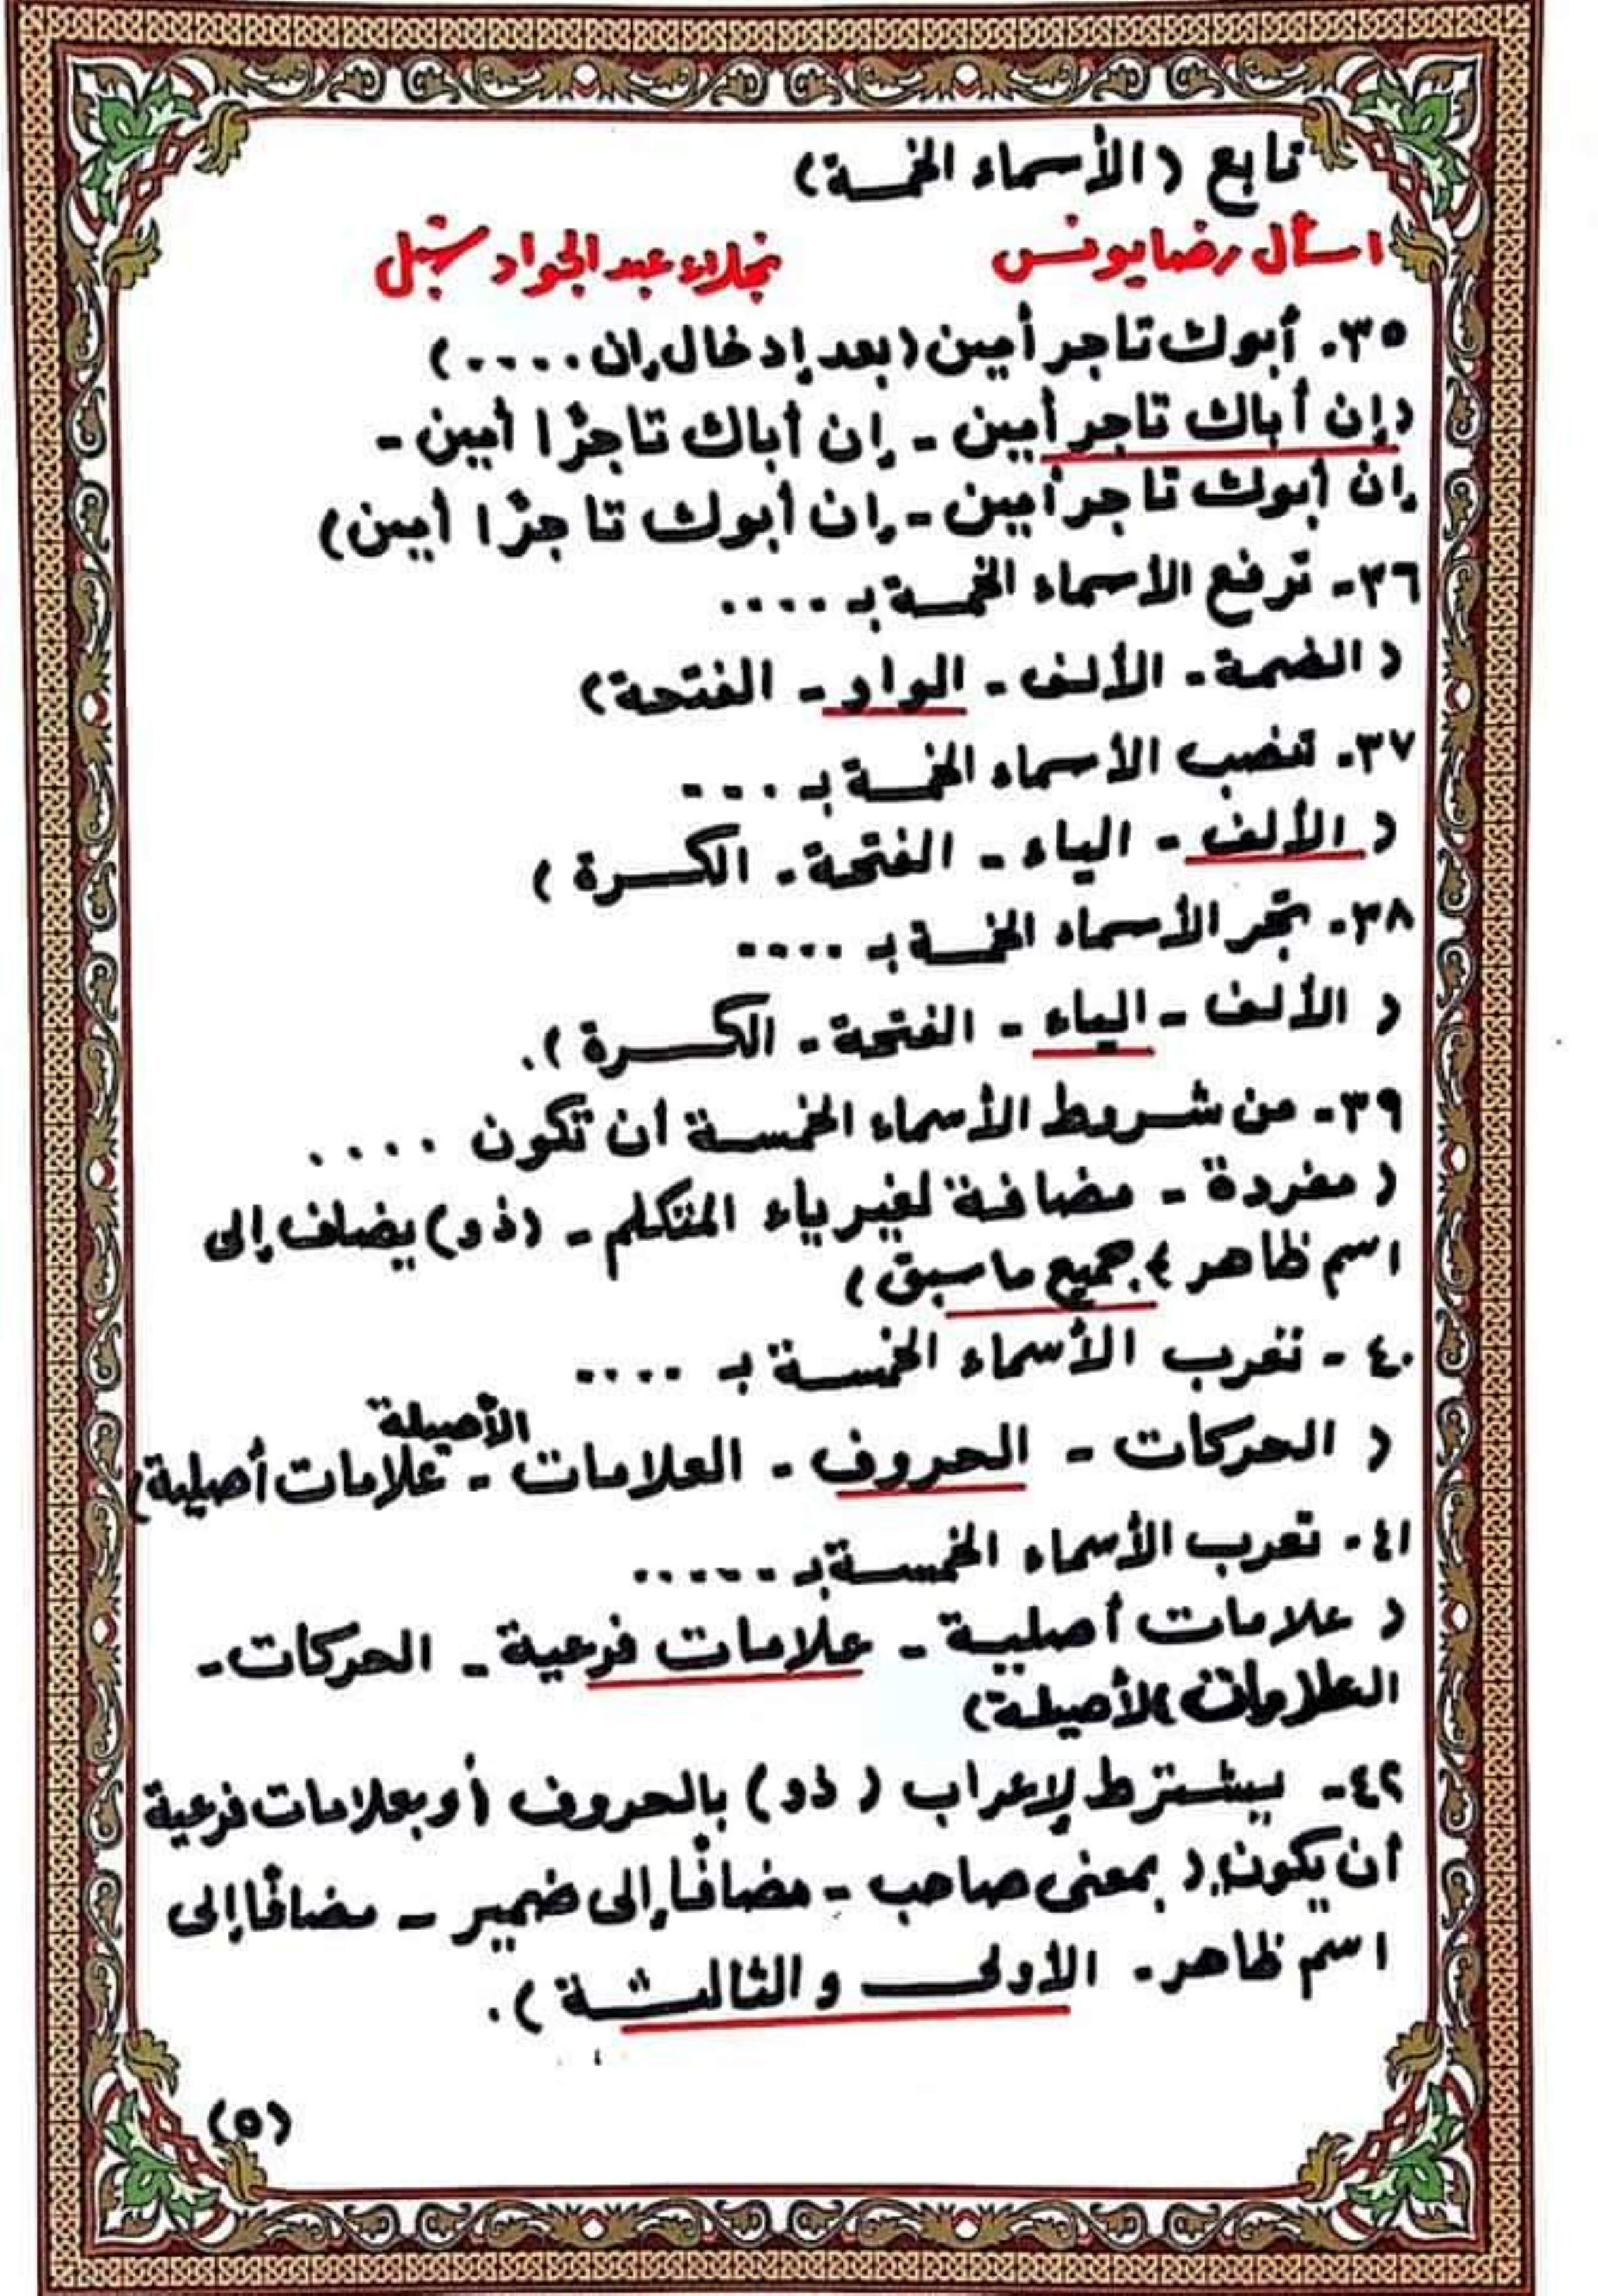 تابع (الأسماء الخمسة)
اسأل رضا يونس نجلاء عبد الجواد شبل
٣٥. أبوك تاجر أمين (بعد إدخال إن ....)
(إن أباك تاجر أمين - إن أباك تاجرًا أمين -
إن أبوك تاجر أمين - إن أبوك تاجرًا أمين)
٣٦- ترفع الأسماء الخمسة بـ ....
(الضمة - الألف - الواو - الفتحة)
٣٧. تنصب الأسماء الخمسة بـ ....
(الألف - الياء - الفتحة - الكسرة)
٣٨. تجر الأسماء الخمسة بـ ....
(الألف - الياء - الفتحة - الكسرة).
٣٩- من شروط الأسماء الخمسة أن تكون ....
(مفردة - مضافة لغير ياء المتكلم - (ذو) يضاف إلى
اسم ظاهر - جميع ما سبق)
٤٠- تعرب الأسماء الخمسة بـ ....
(الحركات - الحروف - العلامات الأصيلة - علامات أصلية)
٤١. تعرب الأسماء الخمسة بـ .....
(علامات أصلية - علامات فرعية - الحركات -
العلامات الأصيلة)
٤٢- يشترط لإعراب (ذو) بالحروف أو بعلامات فرعية
أن يكون (بمعنى صاحب - مضافًا إلى ضمير - مضافًا إلى
اسم ظاهر - الأولى والثالثة).
(٥)